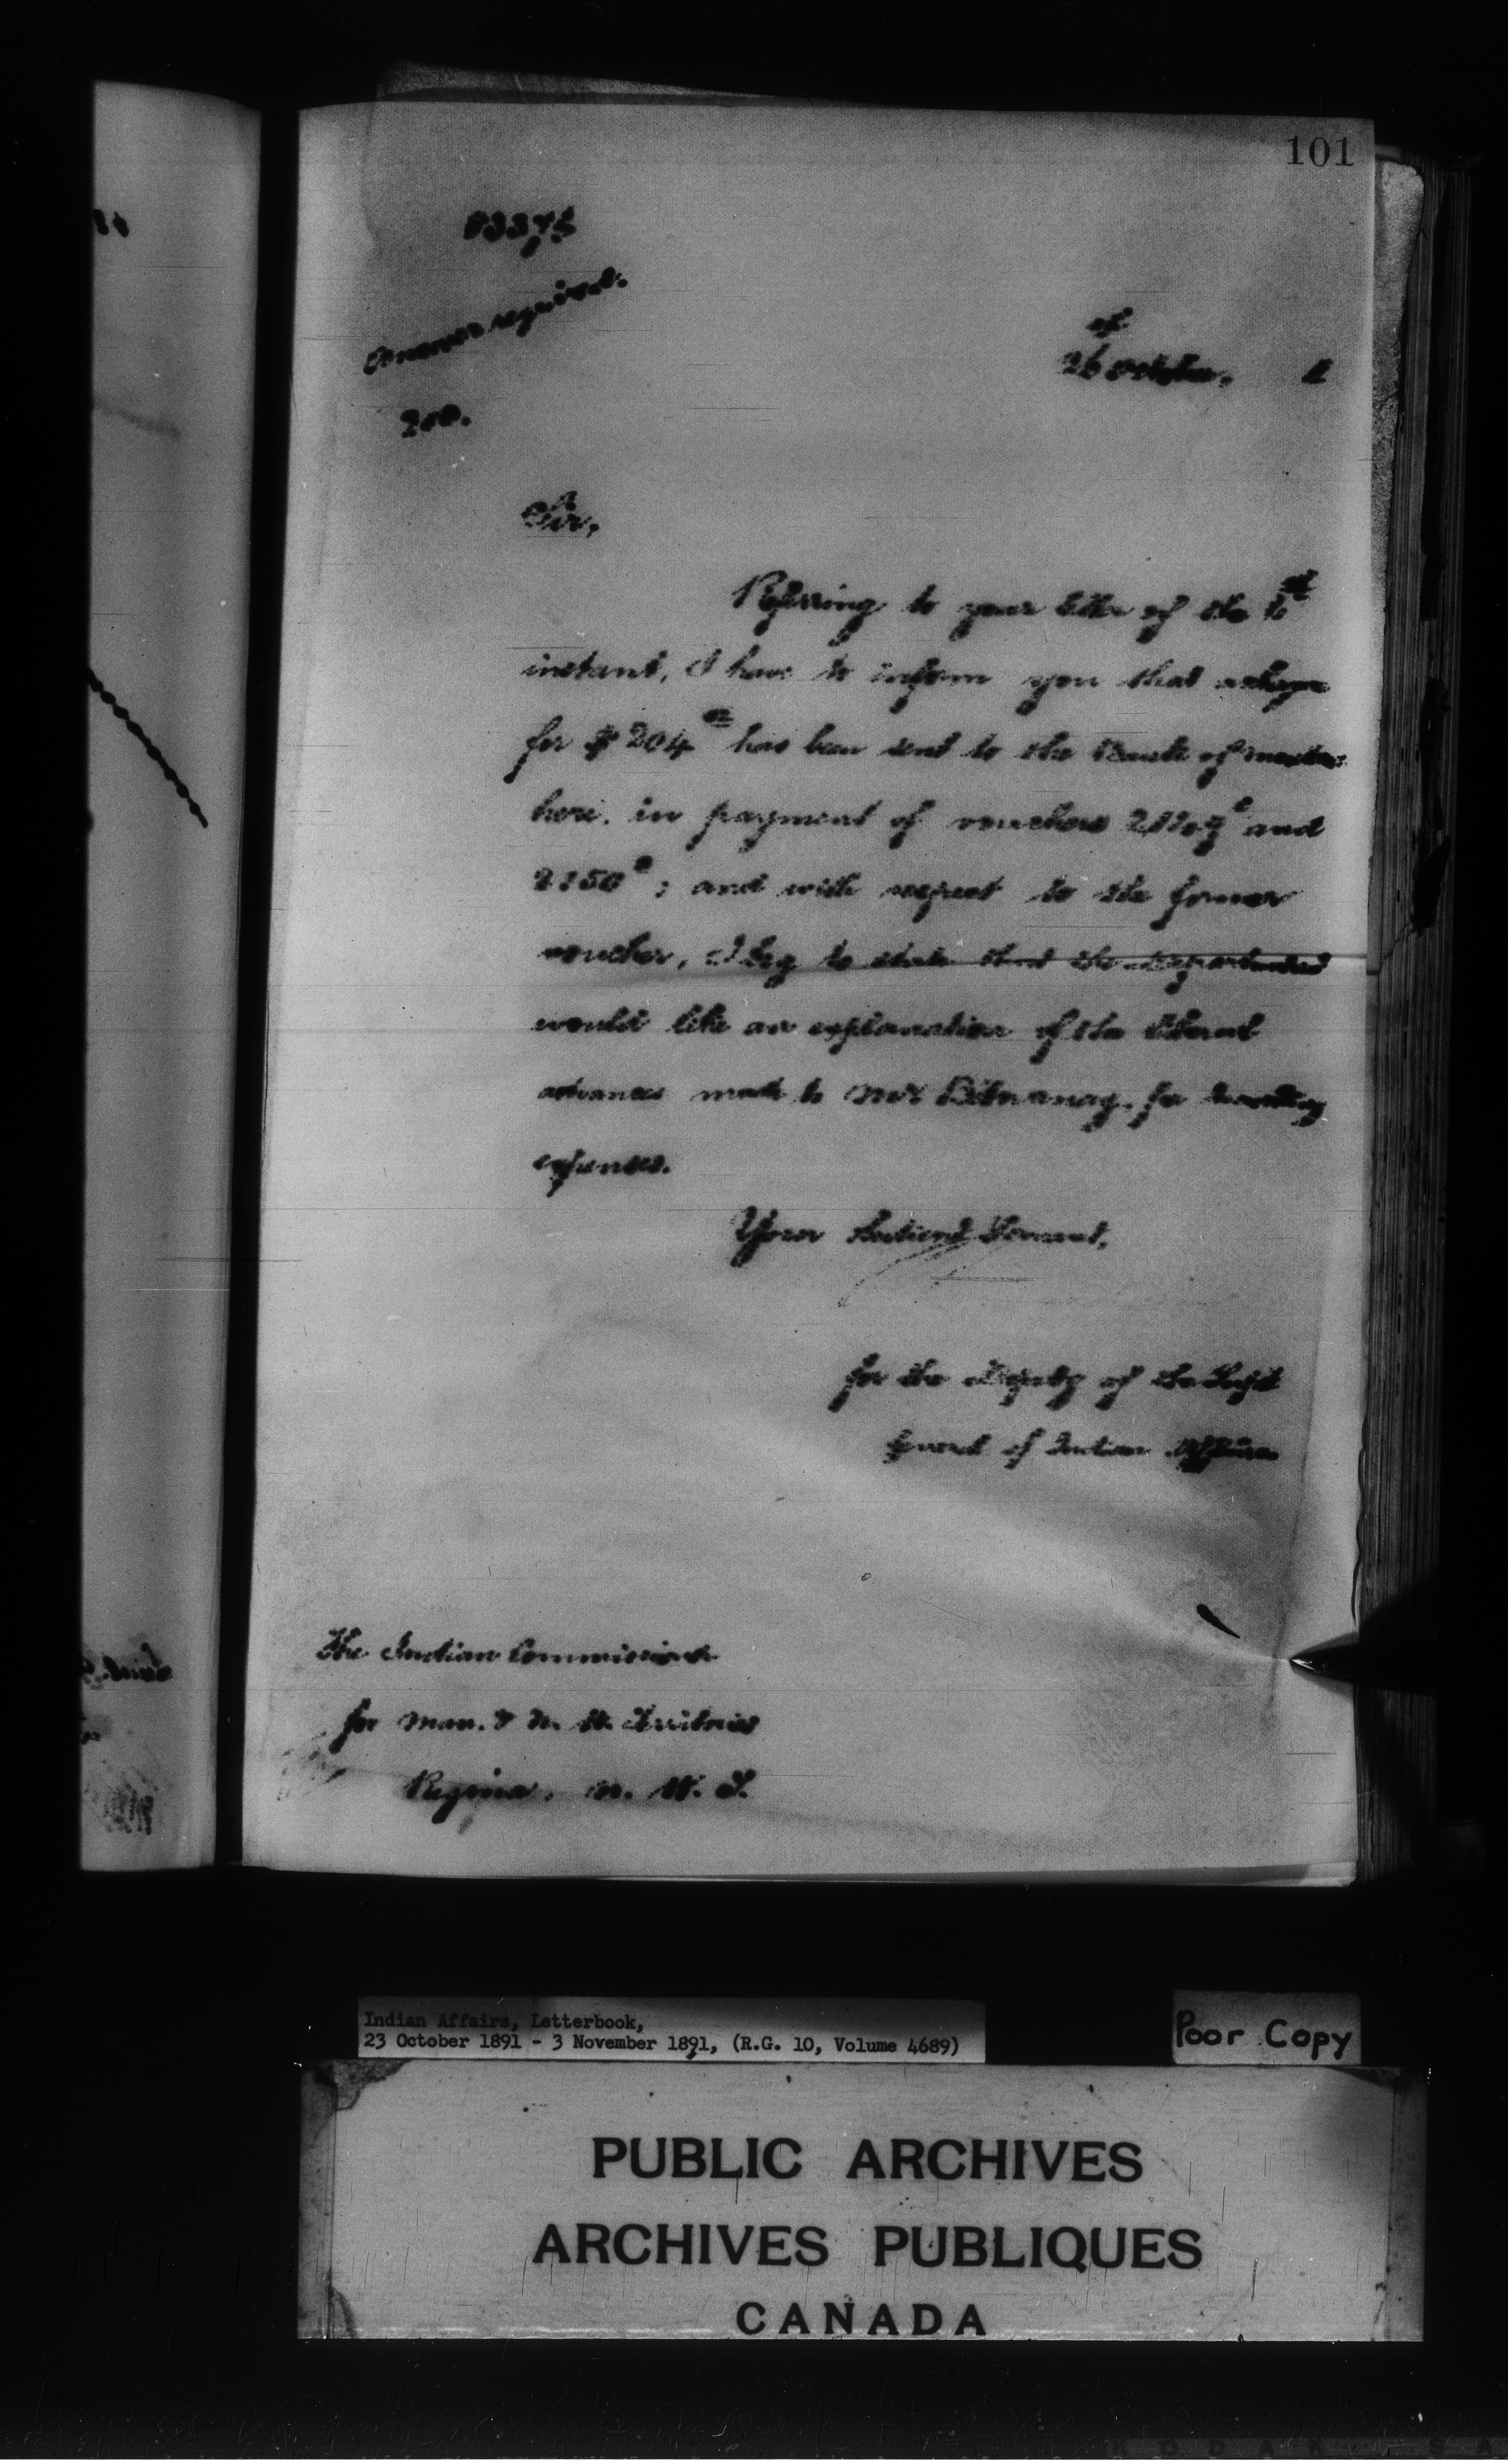 101
Answer required.
200.
26 October, 1
Sir,
Referring to your letter of the 6th
instant, I have to inform you that a cheque
for $204 has been sent to the Bank of
here, in payment of vouchers and
2150; and with respect to the former
voucher, I beg to state that the Department
would like an explanation of the liberal
advances made to Mr for travelling
expenses.
Your obedient Servant,
for the Deputy of the Supt
General of Indian Affairs
The Indian Commissioner
for Man. & N. W. Territories
Regina, N. W. T.
Indian Affairs, Letterbook,
23 October 1891 - 3 November 1891, (R.G. 10, Volume 4689)
Poor Copy
PUBLIC ARCHIVES
ARCHIVES PUBLIQUES
CANADA